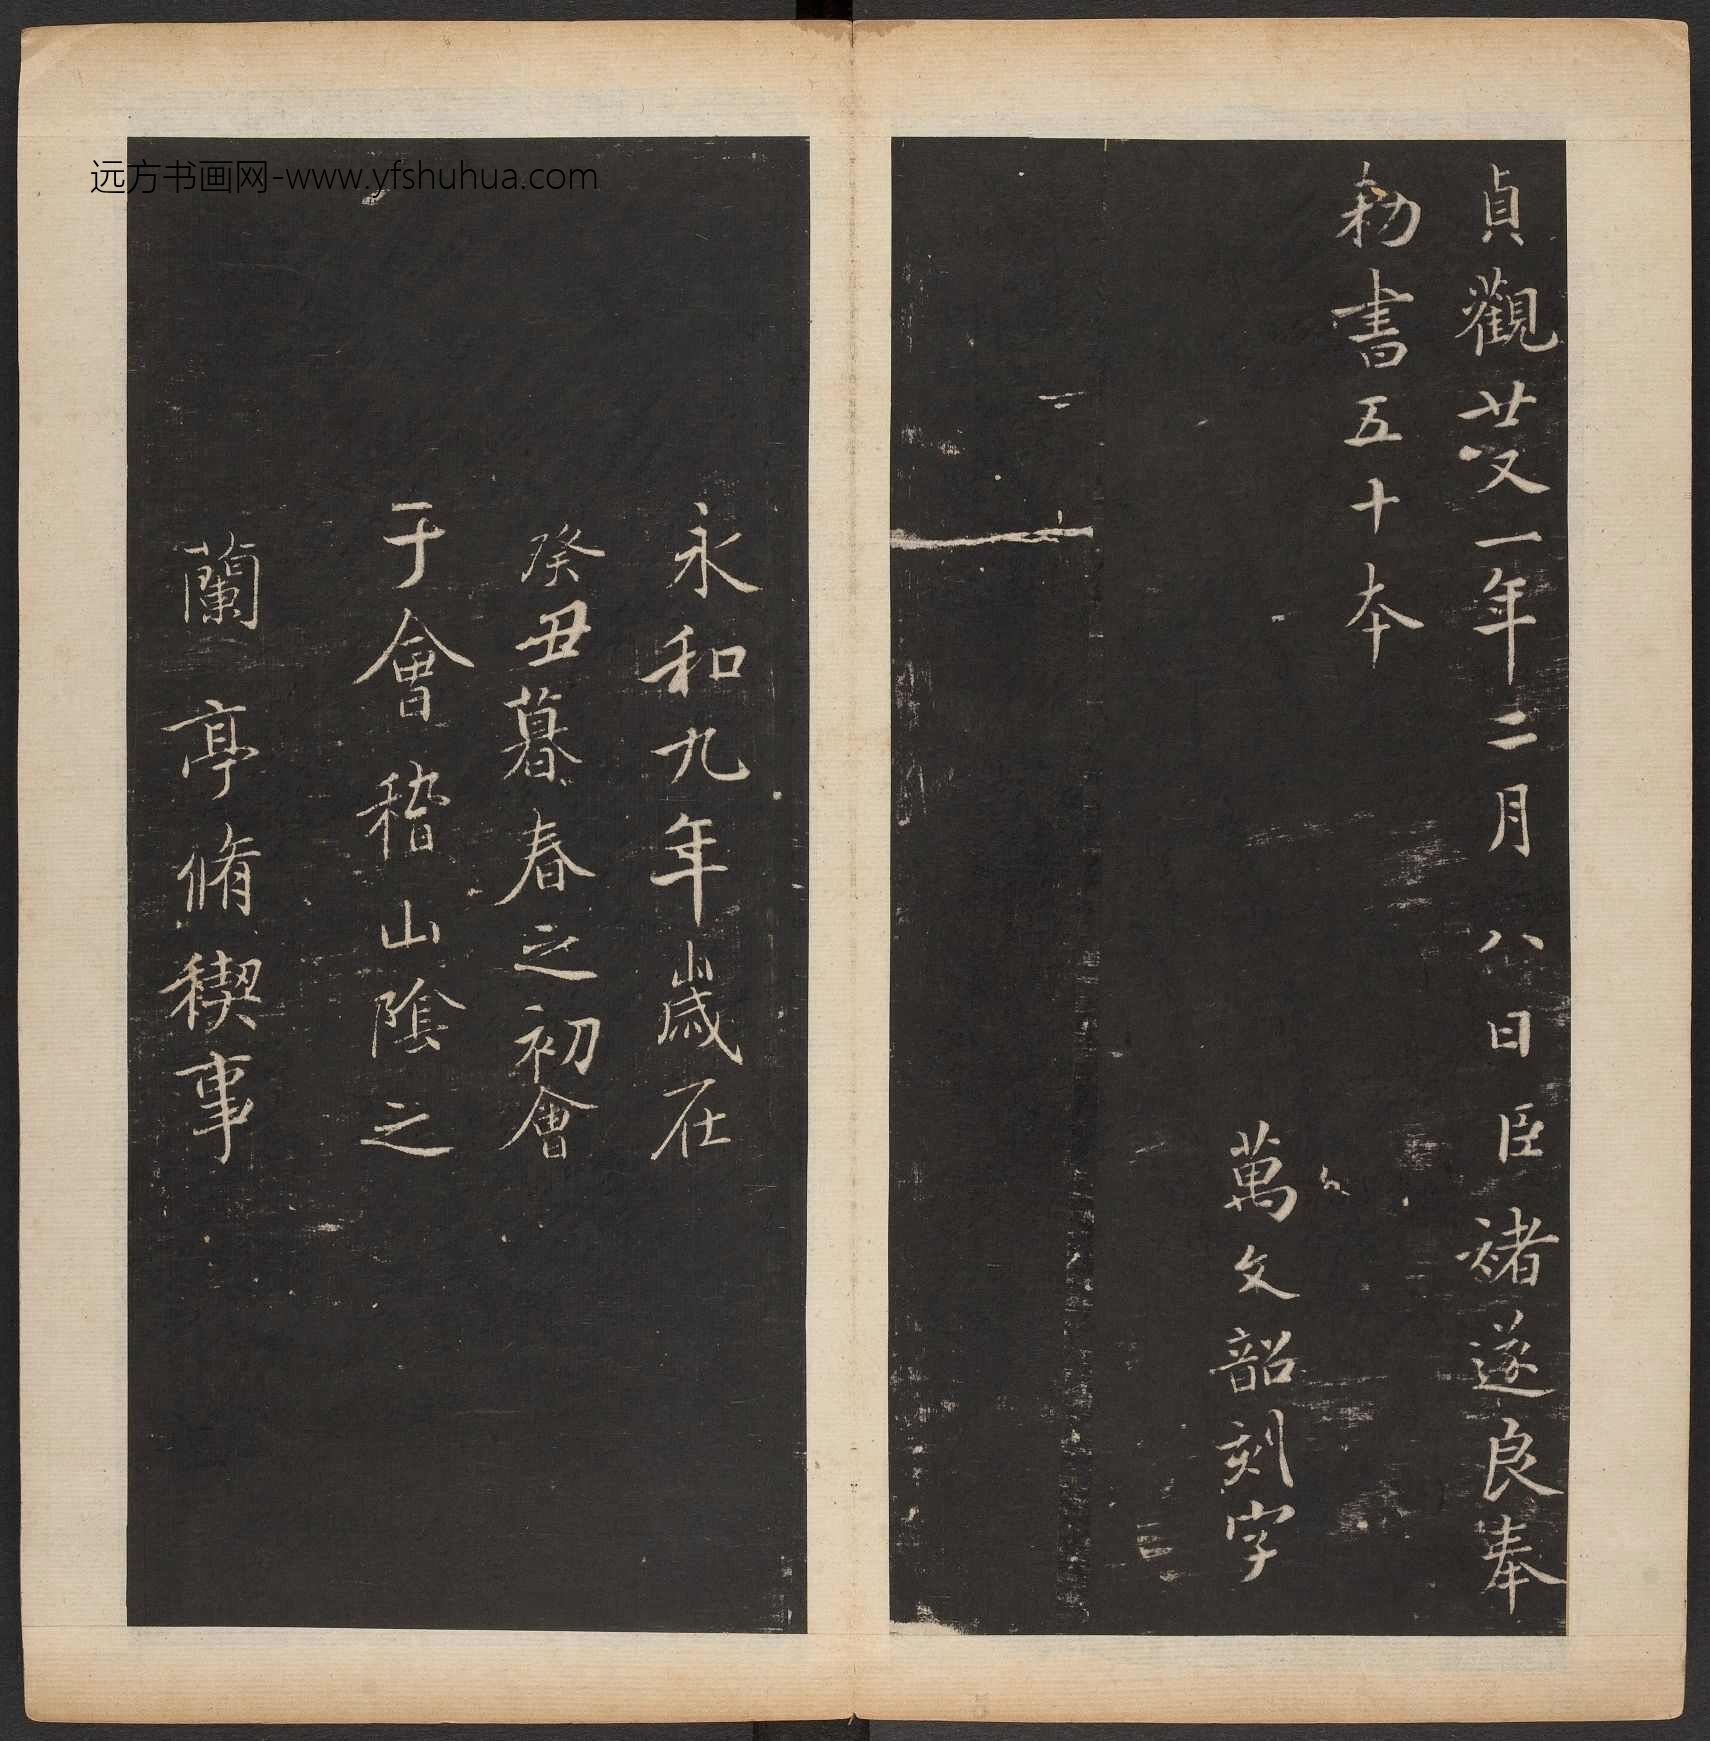 貞觀廿又一年二月八日臣褚遂良奉
勑書五十本
萬文韶刻字
永和九年歲在
癸丑暮春之初會
于會稽山陰之
蘭亭脩稧事
远方书画网-www.yfshuhua.com